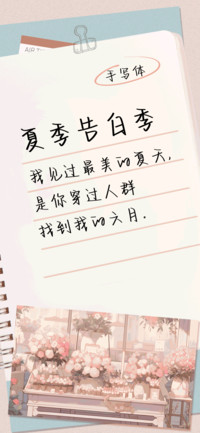 手写体
夏季告白季
我见过最美的夏天,
是你穿过人群
找到我的六月.